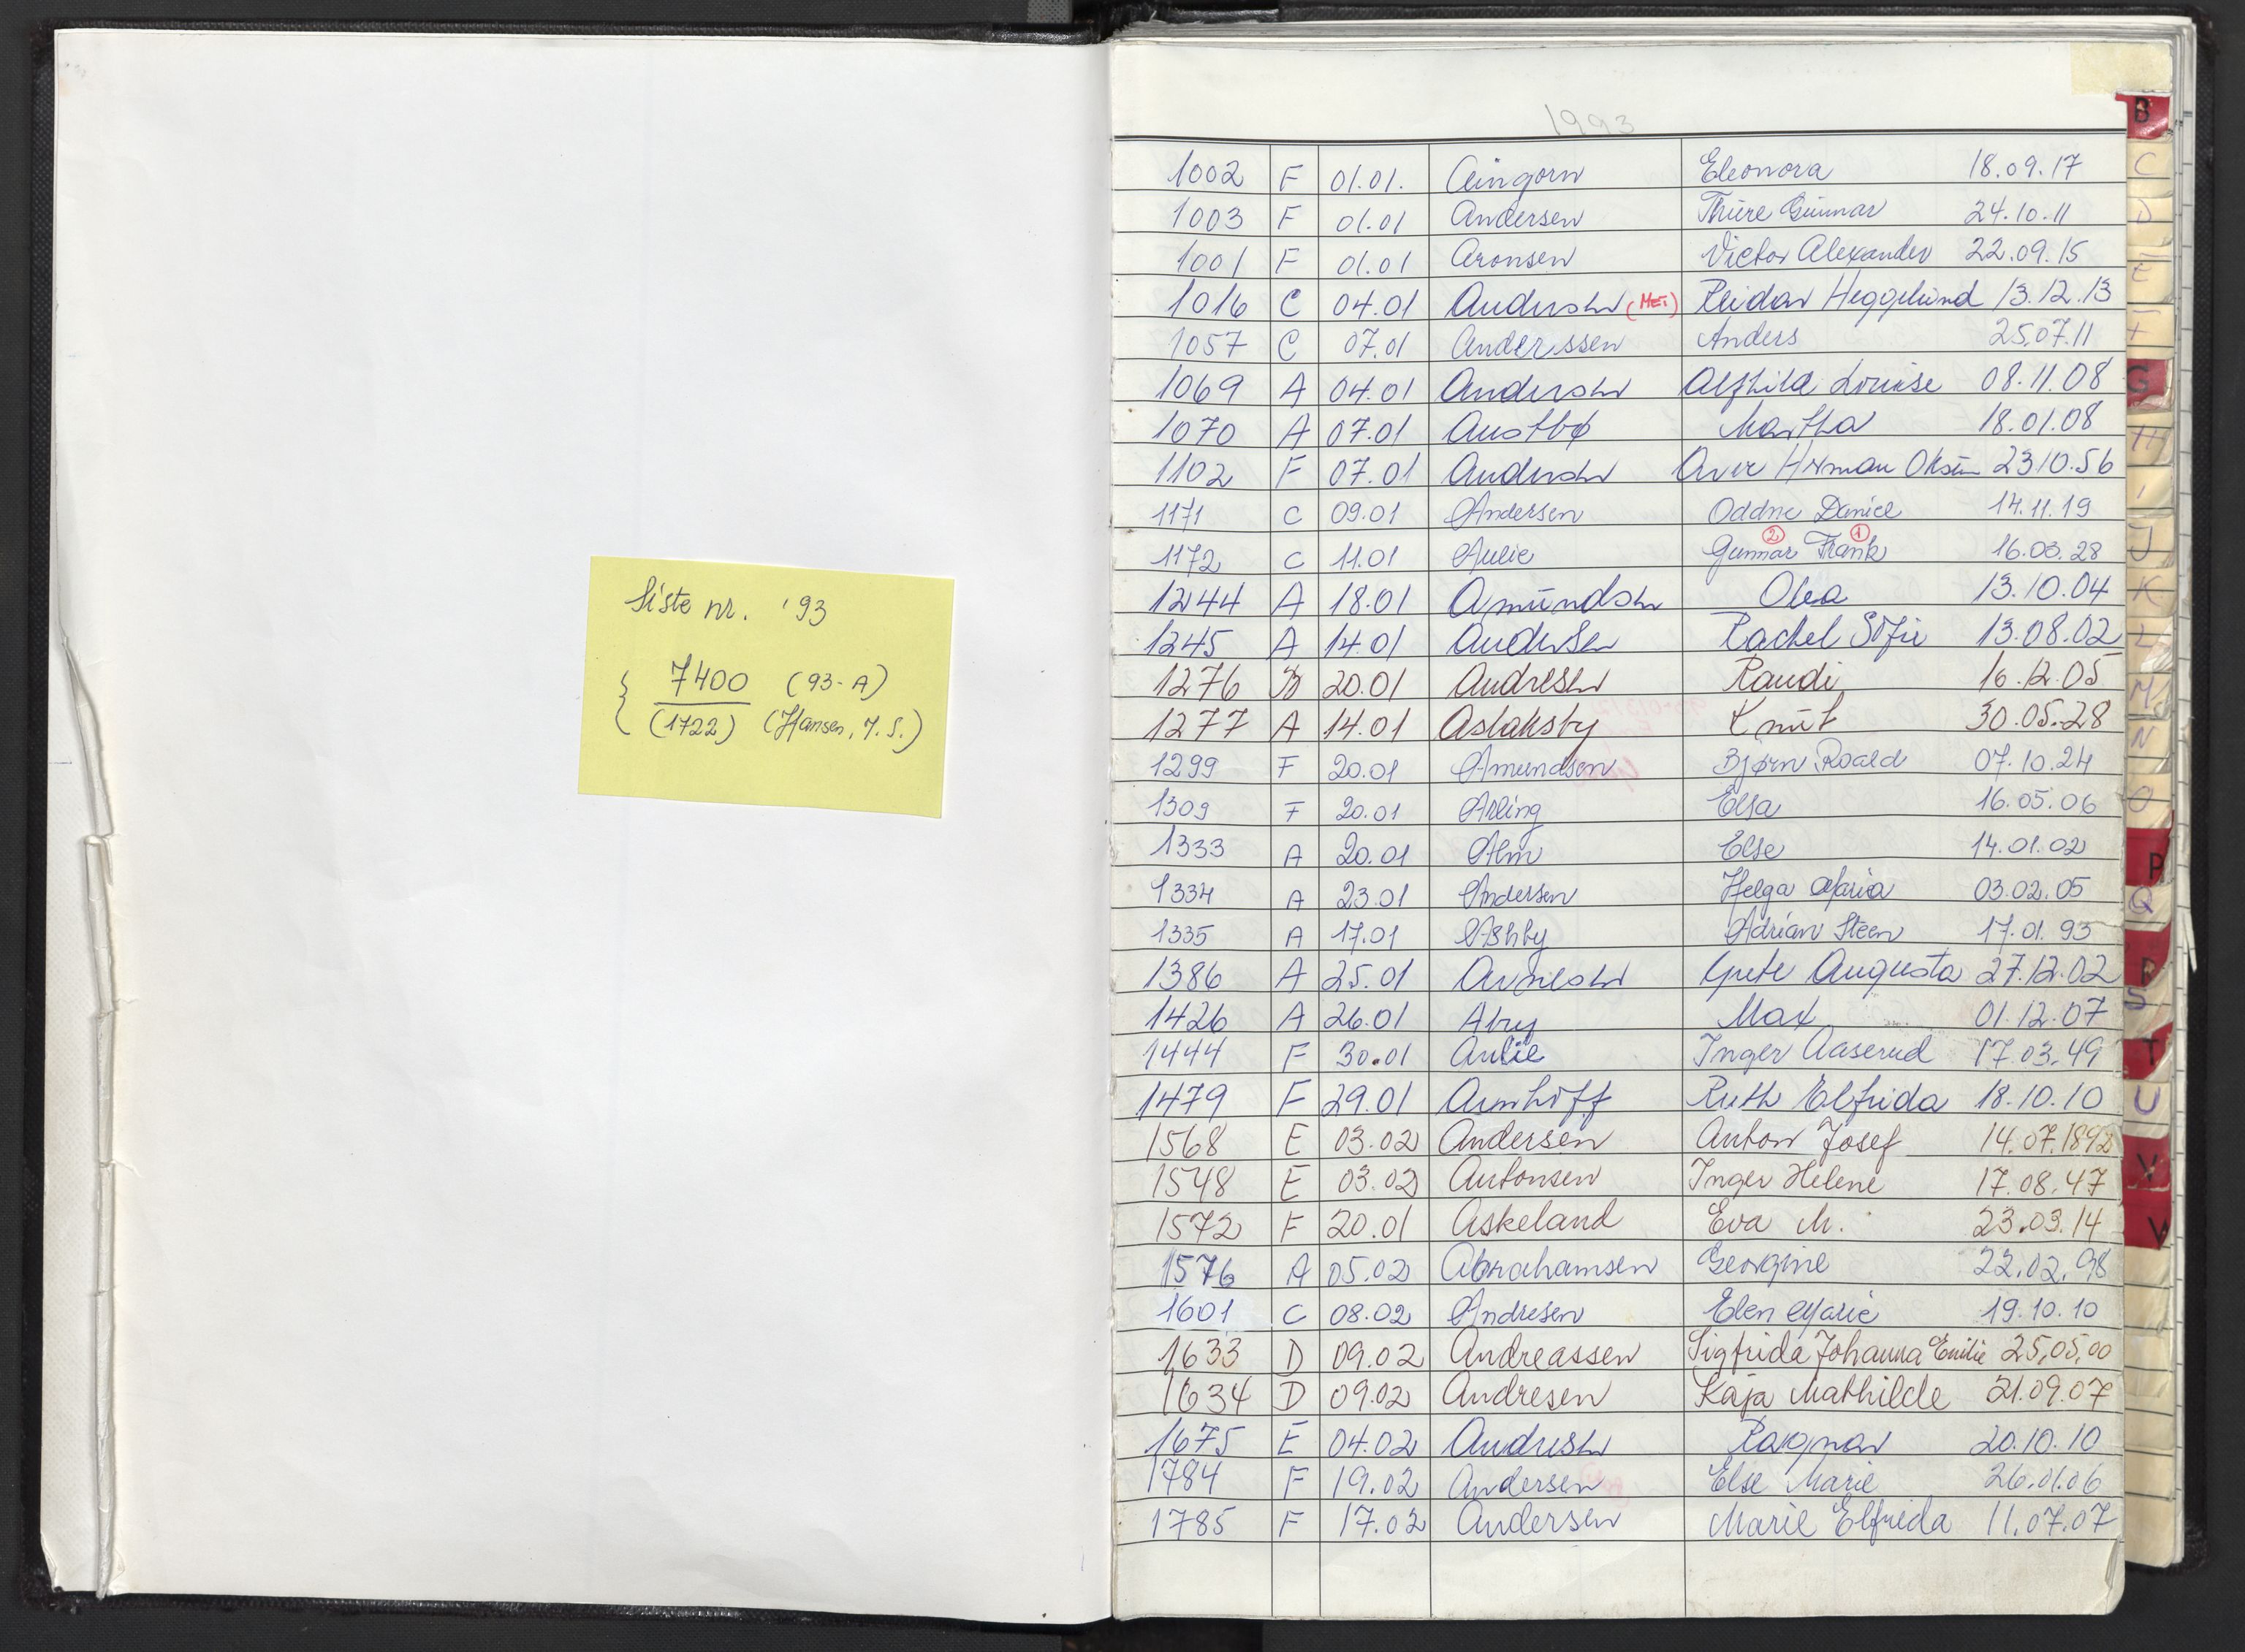 Siste nr. '93
7400 (93-A)
(1722) (Hansen, J. S.)
1993
1002 F 01.01. Aingorn Eleonora 18.09.17
1003 F 01.01 Andersen Thure Gunnar 24.10.11
1001 F 01.01 Aronsen Victor Alexander 22.09.15
1016 C 04.01 Andersen Reidar Heggelund 13.12.13
1057 C 07.01 Anderssen Anders 25.07.11
1069 A 04.01 Andersen Alfhild Louise 08.11.08
1070 A 07.01 Austbø Martha 18.01.08
1102 F 07.01 Andersen Herman 23.10.56
1171 C 09.01 Andersen Oddne Daniel 14.11.19
2 1
1172 C 11.01 Aulie Gunnar Frank 16.03.28
1244 A 18.01 Amundsen Olea 13.10.04
1245 A 14.01 Andersen Rachel Sofie 13.08.02
1276 B 20.01 Andresen Randi 16.12.05
1277 A 14.01 Aslaksby Knut 30.05.28
1299 F 20.01 Amundsen Bjørn Roald 07.10.24
1309 F 20.01 Arling Elsa 16.05.06
1333 A 20.01 Alm Else 14.01.02
1334 A 23.01 Andersen Helga Maria 03.02.05
1335 A 17.01 Ashby Adrian Steen 17.01.93
1386 A 25.01 Arnesen Grete Augusta 27.12.02
1426 A 26.01 Abry Max 01.12.07
1444 F 30.01 Aulie Inger Aaserud 17.03.49
1479 F 29.01 Arnhoff Ruth Elfrida 18.10.10
1568 E 03.02 Andersen Anton Josef 14.07.1892
1548 E 03.02 Antonsen Inger Helene 17.08.47
1572 F 20.01 Askeland Eva M. 23.03.14
1576 A 05.02 Abrahamsen Georgine 22.02.98
1601 C 08.02 Andresen Elen Marie 19.10.10
1633 D 09.02 Andreassen Sigfrida Johanna Emilie 25.05.00
1634 D 09.02 Andresen Kaja Mathilde 21.09.07
1675 E 04.02 Andresen Ragnar 20.10.10
1784 F 19.02 Andersen Else Marie 26.01.06
1785 F 17.02 Andersen Marie Elfrida 11.07.07
B
C
D
E
F
G
H
I
J
K
L
M
N
O
P
Q
R
S
T
U
V